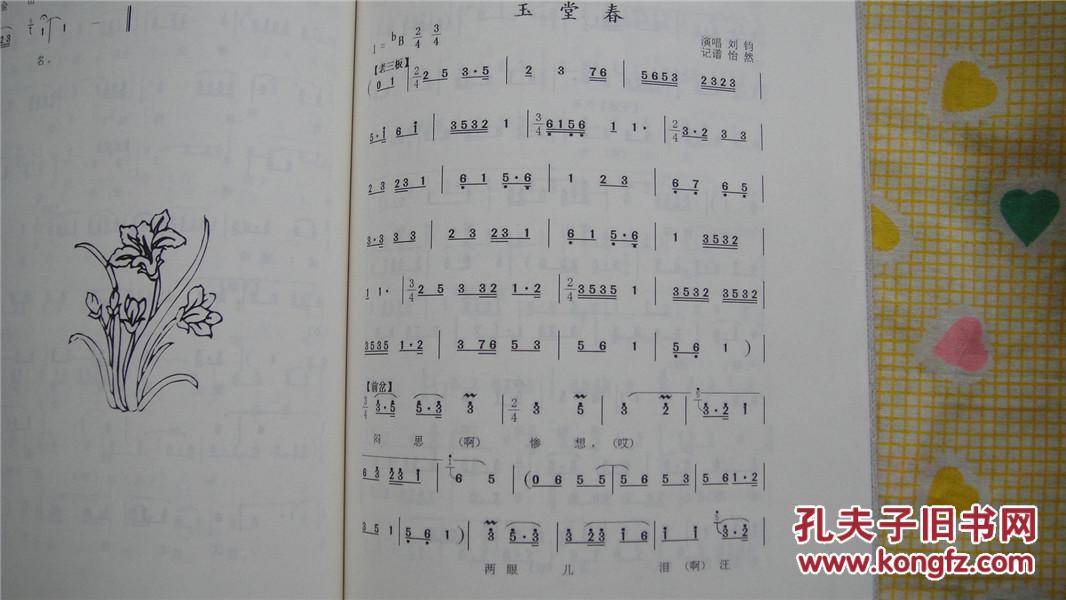 玉堂春
1= bB 2/4 3/4
演唱 刘钧
记谱 怡然
【老三板】
(0 1 | 2/4 2 5 3·5 | 2 3 76 | 5653 2323 |
5·1 6 1 | 3532 1 | 3/4 6156 1 1· | 2/4 3·2 3 3 |
2 3 23 1 | 6 1 5·6 | 1 2 3 | 6 7 6 5 |
3·3 3 3 | 2 3 23 1 | 6 1 5·6 | 1 3532 |
1 1· | 3/4 2 5 3 32 1·2 | 2/4 3535 1 | 3532 3532 |
3535 1·2 | 3 76 5 3 | 5 6 1 | 5 6 1 ) |
【前岔】
3/4 3·5 5·3 3 | 2/4 3 5 | 3 2 | 3·2 1
闷 思 (啊) 惨 想, (哎)
6 3 23 1 | 6 5 | (0 6 5 5 | 5 6 5 3 | 5 6 1·2 |
3 5 1 | 5 6 1 ) | 3 5·3 | 3 23 1 6 | 1 1 3·2 |
两 眼 儿 泪 (啊) 汪
孔夫子旧书网
www.kongfz.com